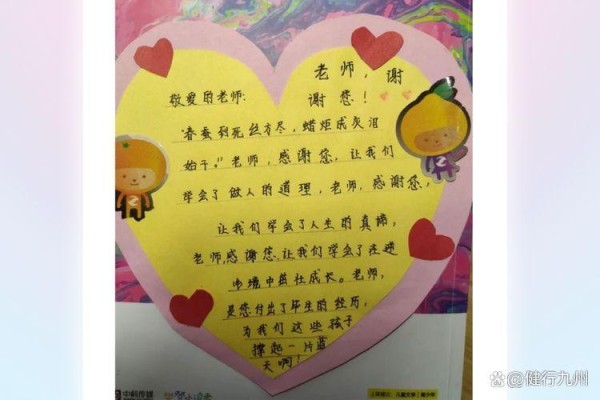 老师，谢
谢您！
敬爱的老师:
"春蚕到死丝方尽，蜡炬成灰泪
始干。"老师，感谢您，让我们
学会了做人的道理，老师，感谢您，
让我们学会了人生的真谛，
老师,感谢您,让我们学会了在逆
境中茁壮成长。老师，
是您付出了毕生的经历，
为我们这些孩子
撑起一片蓝
天啊！
@健行九州